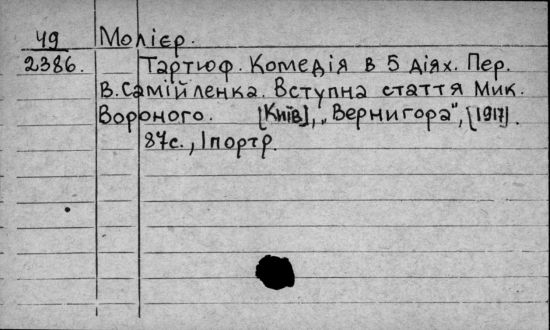 49 Молієр.
2386. Тартюф. Комедія в 5 діях. Пер.
В. Самійленка. Вступна стаття Мик.
Вороного. [Київ], „Вернигора", [1917].
87с., 1 портр.